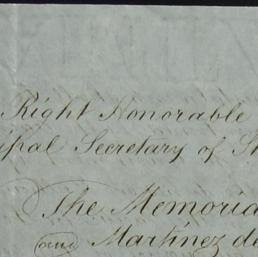 Right Honorable
ipal Secretary of St
The Memoria
and Martinez de